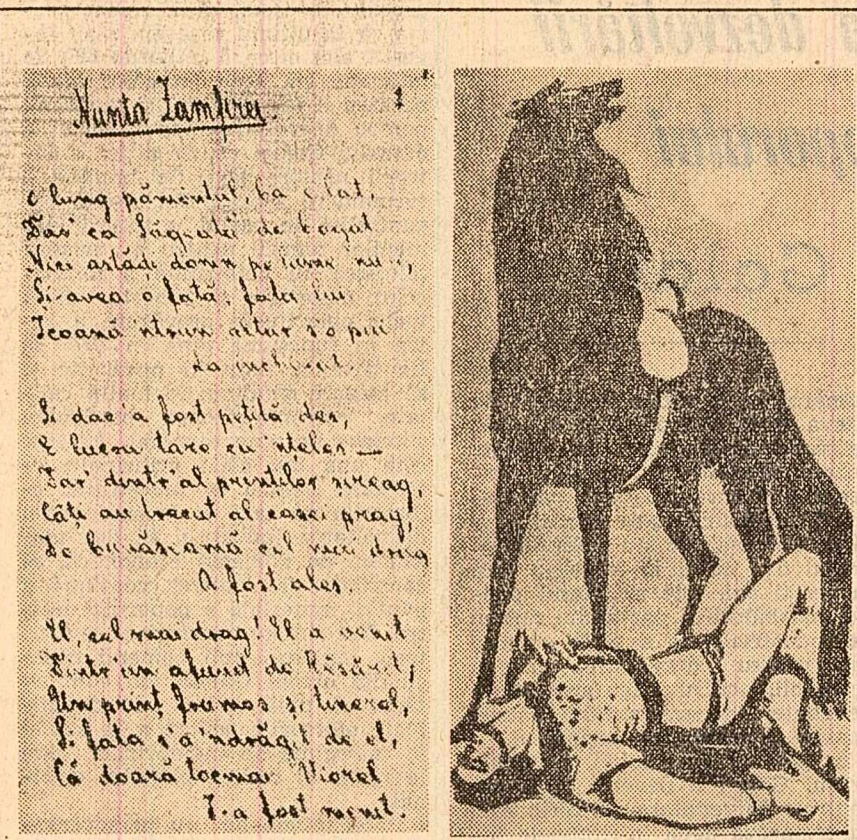 Nunta Zamfirei. 1
E lung pămêntul, ba e lat,
Dar' ca Săgeată de bogat
Nici astădi domn pe lume nu-i,
Și-avea o fată, fata lui
Icoană 'ntrun altar s'o pui
La inchinat.
Și dac' a fost pețită des,
E lucru tare cu 'nțeles —
Dar' dintr'al prinților șireag,
Câți au trecut al casei prag,
De bunăseamă cel mai drag
A fost ales.
El, cel mai drag! El a venit
Dintr'un afund de Răsărit,
Un prinț frumos și tinerel,
Și fata s'a 'ndrăgit de el,
Că doară tocmai Viorel
I-a fost menit.